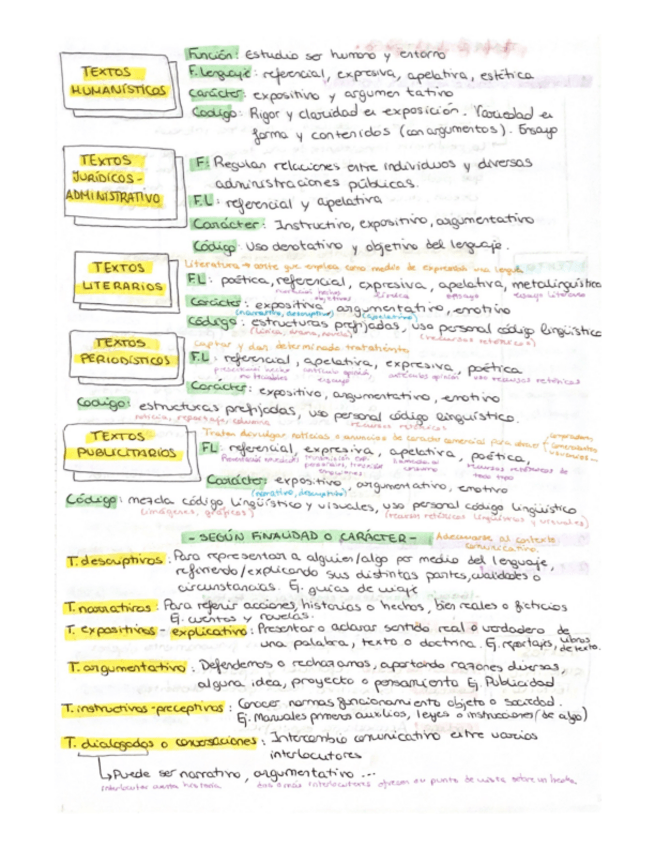 TEXTOS HUMANÍSTICOS
Función: Estudio ser humano y entorno
F. lenguaje: referencial, expresiva, apelativa, estética
Carácter: expositivo y argumentativo
Código: Rigor y claridad en exposición. Variedad en
forma y contenidos (con argumentos). Ensayo
TEXTOS JURÍDICOS-ADMINISTRATIVO
F: Regulan relaciones entre individuos y diversas
administraciones públicas.
F.L: referencial y apelativa
Carácter: Instructivo, expositivo, argumentativo
Código: Uso denotativo y objetivo del lenguaje.
TEXTOS LITERARIOS
Literatura → arte que emplea como medio de expresión una lengua
F.L: poética, referencial, expresiva, apelativa, metalingüística
lírica ensayo ensayo literario
Carácter: expositiva, argumentativo, emotivo
(narrativo, descriptivo) (apelativo)
Código: estructuras prefijadas, uso personal código lingüístico
(lírica, drama, novela) (recursos retóricos)
TEXTOS PERIODÍSTICOS
Captar y dan determinado tratamiento
F.L: referencial, apelativa, expresiva, poética
artículos opinión uso recursos retóricos
Carácter: expositivo, argumentativo, emotivo
Código: estructuras prefijadas, uso personal código lingüístico.
noticia, reportaje, columna recursos retóricos
TEXTOS PUBLICITARIOS
Tratan divulgar noticias o anuncios de carácter comercial para atraer compradores,
F.L: referencial, expresiva, apelativa, poética,
recursos retóricos de todo tipo
Carácter: expositivo, argumentativo, emotivo
(narrativo, descriptivo)
Código: mezcla código lingüístico y visuales, uso personal código lingüístico
(imágenes, gráficos) (recursos retóricos lingüísticos y visuales)
- SEGÚN FINALIDAD O CARÁCTER - Adecuarse al contexto comunicativo.
T. descriptivos: Para representar a alguien/algo por medio del lenguaje,
refiriendo/explicando sus distintas partes, cualidades o
circunstancias. Ej. guías de viaje
T. narrativos: Para referir acciones, historias o hechos, bien reales o ficticios
Ej. cuentos y novelas.
T. expositivos - explicativo: Presentar o aclarar sentido real o verdadero de
una palabra, texto o doctrina. Ej. reportajes, libros de texto.
T. argumentativo: Defendemos o rechazamos, aportando razones diversas,
alguna idea, proyecto o pensamiento Ej. Publicidad
T. instructivos-preceptivos: Conocer normas funcionamiento objeto o sociedad.
Ej. Manuales primeros auxilios, leyes o instrucciones (de algo)
T. dialogados o conversaciones: Intercambio comunicativo entre varios
interlocutores
↳ Puede ser narrativo, argumentativo ...
interlocutor cuenta historia dos o más interlocutores ofrecen su punto de vista sobre un hecho